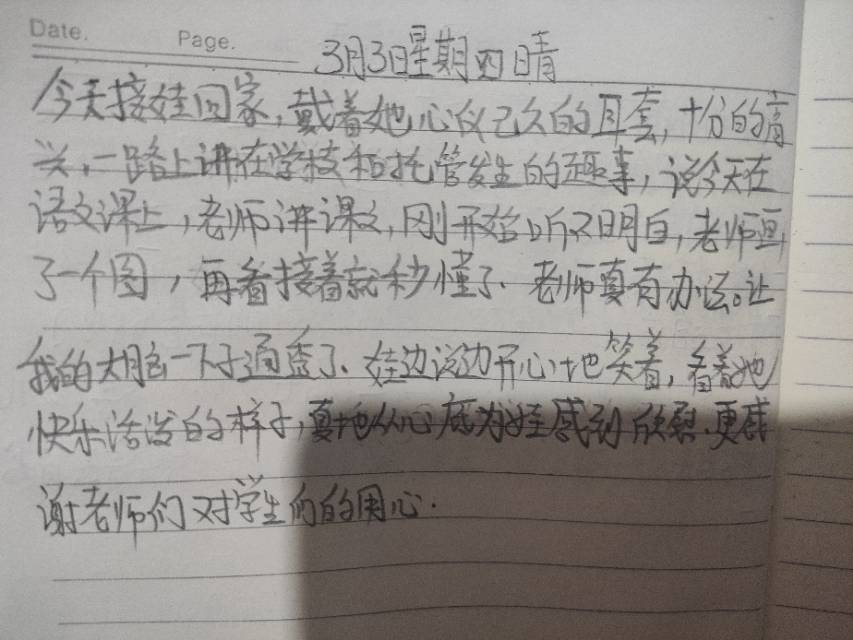 Date. Page.
3月3日星期四晴
今天接娃回家,戴着她心仪已久的耳套,十分的高
兴,一路上讲在学校和托管发生的趣事,说今天在
语文课上,老师讲课文,刚开始听不明白,老师画
了一个图,再看接着就秒懂了、老师真有办法。让
我的大脑一下子通透了、娃边说边开心地笑着,看着她
快乐活泼的样子,真地从心底为娃感到欣慰、更感
谢老师们对学生们的用心.